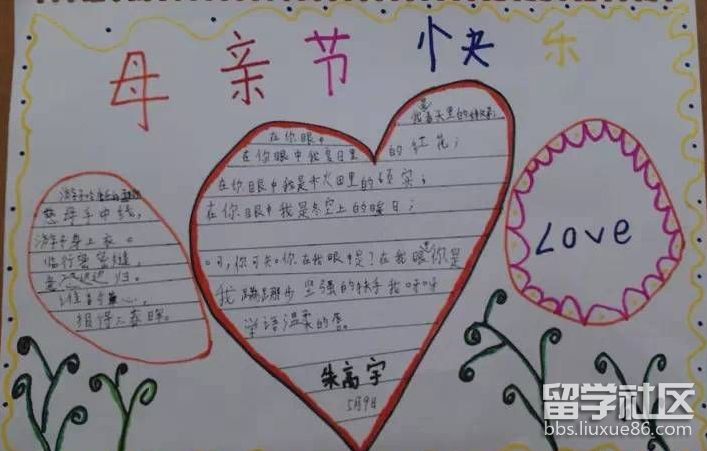 母亲节快乐
慈母手中线，
游子身上衣。
临行密密缝，
意恐迟迟归。
谁言寸草心，
报得三春晖。
在你眼中
在你眼中我是夏日里的红花；
在你眼中我是 田里的硕实；
在你眼中我是冬空上的暖日；
可，你可知你在我眼中是？在我眼 你是
我蹒跚步 坚强的扶手我呀呀
学语温柔的
朱高宇
5月9日
Love
留学社区
bbs.liuxue86.com